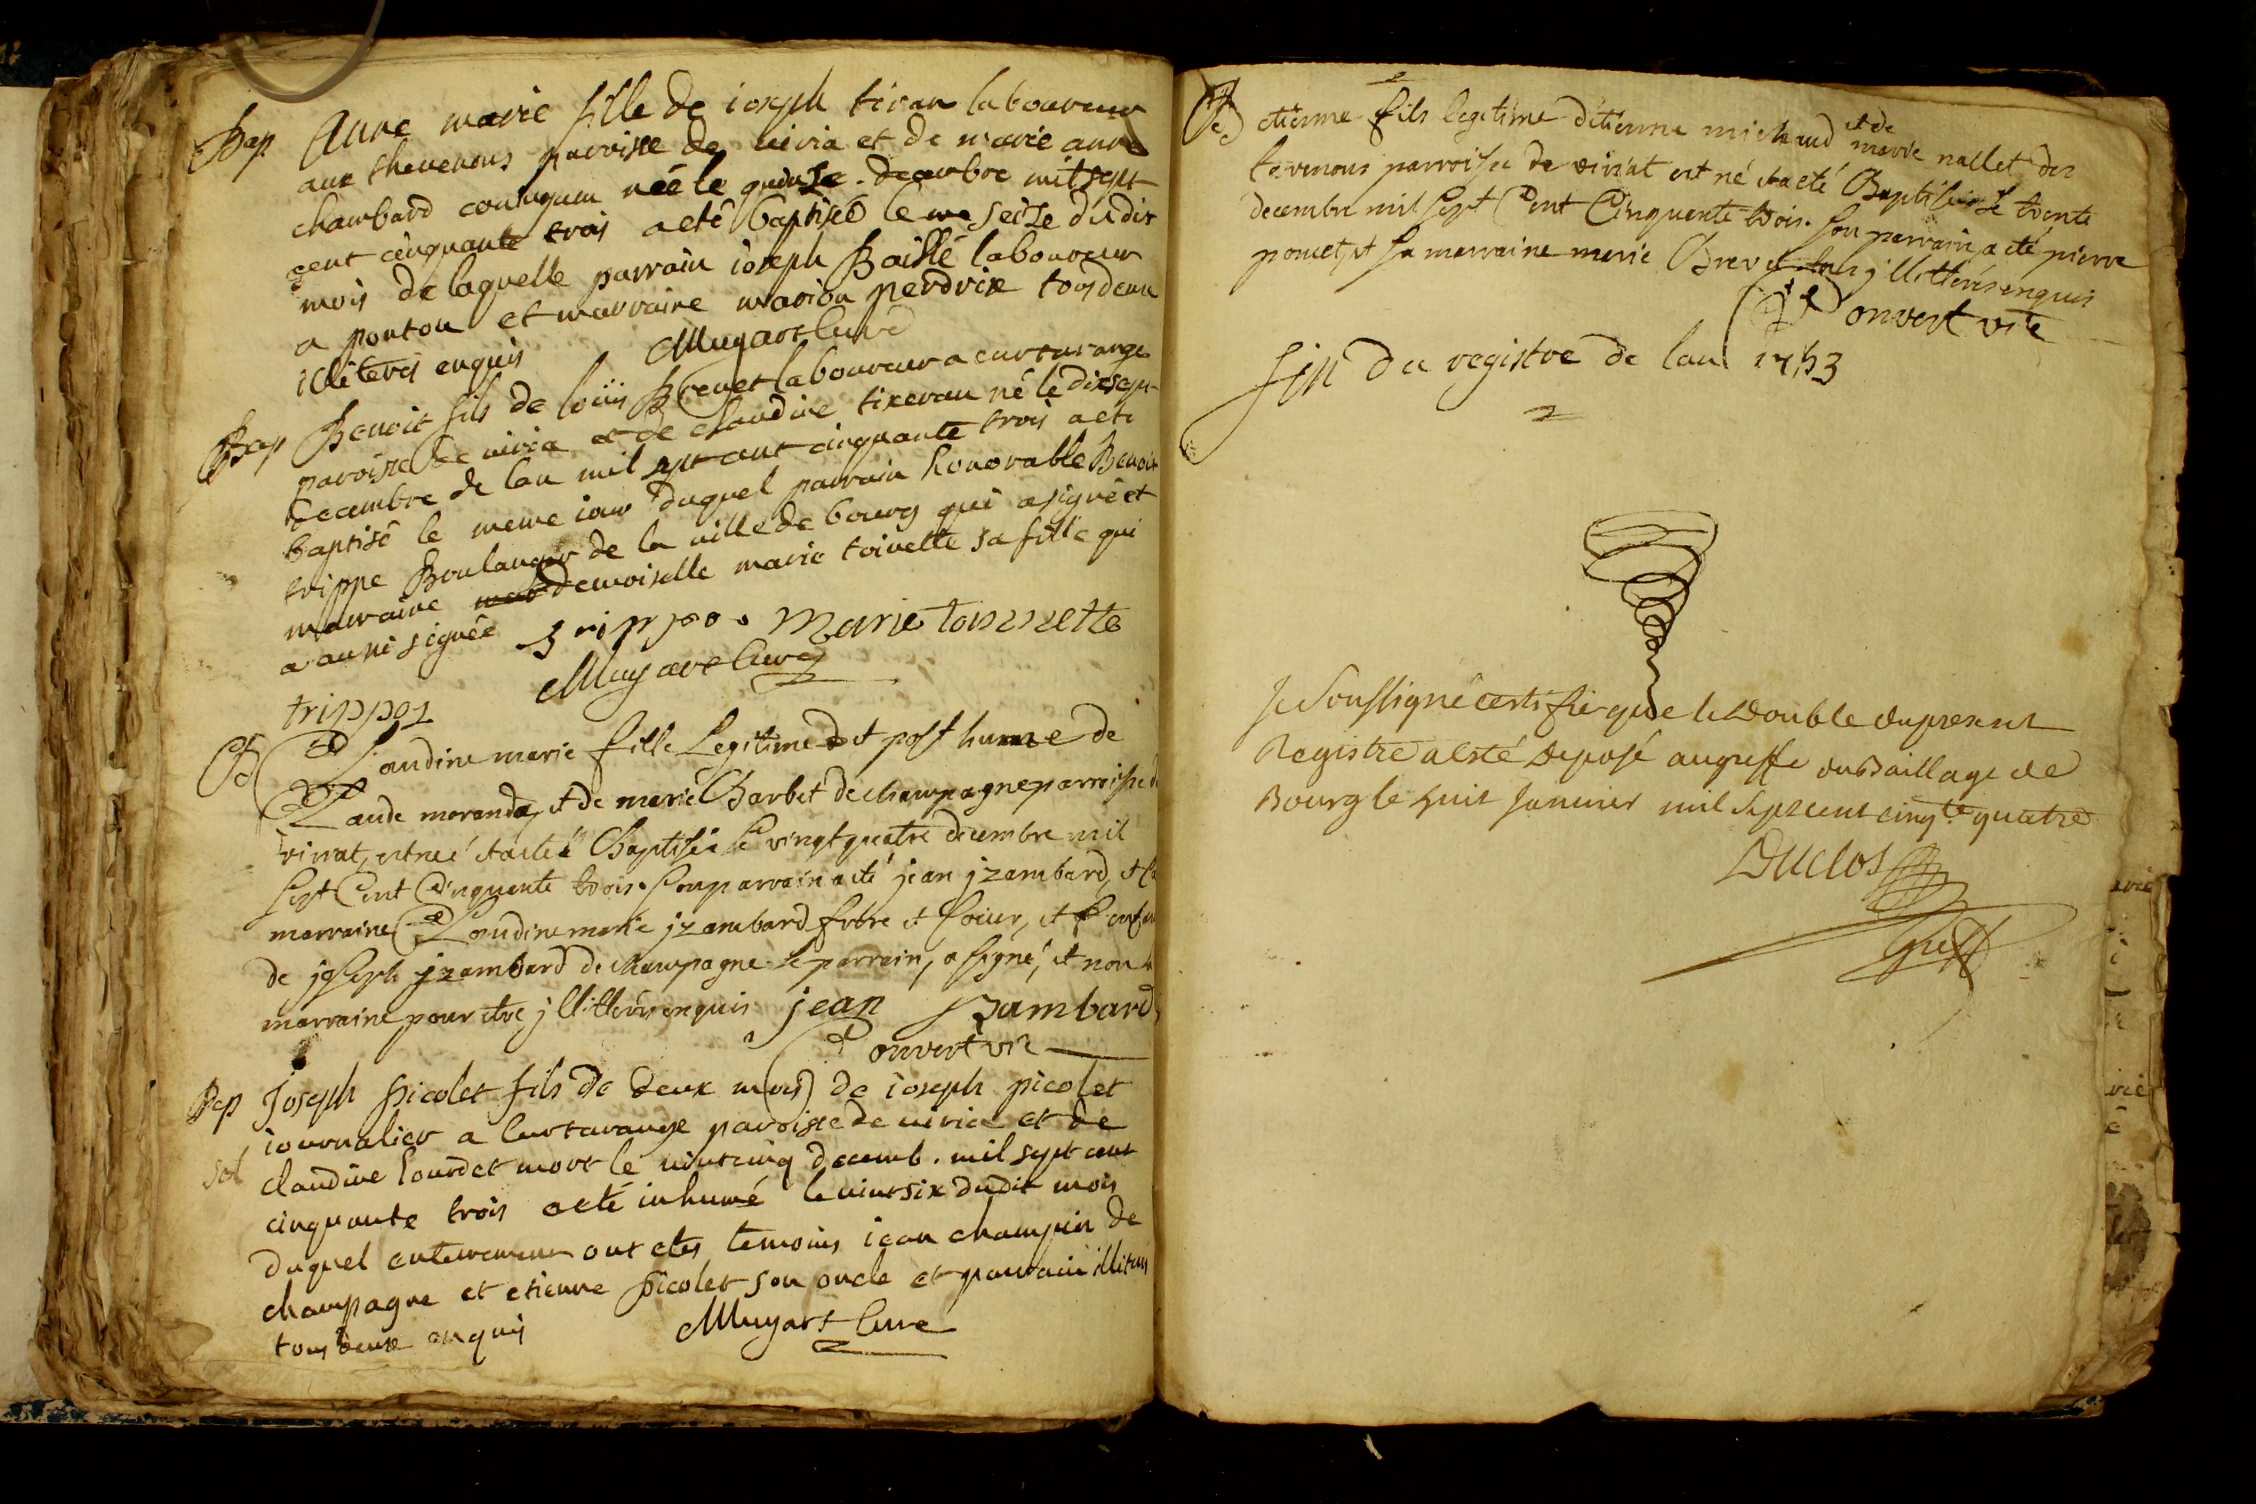 Bap Anne marie fille de ioseph tiran laboureur
aux thevenons parroisse de viria et de marie anne
chambard coniugum née le quinse decembre mil sept
cent cinquante trois a eté baptisée le me seize dudit
mois de laquelle parrain ioseph Baillé laboureur
a ponton et marraine marion perdrix tous deux
illiterés enquis Muyart Curé
Bap Benoit fils de loüis Brevet laboureur a curtarange
paroisse de viria et de claudine tixeran né le dixsept
decembre de lan mil sept cent cinquante trois a eté
baptisé le meme iour duquel parrain honorable Benoit
trippe Boulanger de la ville de bourg qui a signé et
marraine demoiselle marie toinette sa fille qui
a aussi signée trippo . Marie toinnette
Muyart Curé
trippoz
B Claudine marie fille Legitime et posthume de
Claude morandas et de marie Barbet de champagne parroisse d
viriat, est neé et a eté Baptisée le vingt quatre decembre mil
sept Cent Cinquente trois. Son parrain a eté jean jzambard, et sa
marraine Claudine marie jzambard frere et soeur, et enfans
de joseph jzambard de champagne. Le parrain, a signé, et non la
marraine pour etre jllitteréz enquis jean jzambard
Convert vic
Bap Joseph picolet fils de deux mois de ioseph picolet
sol iournalier a Curtarange paroisse de viria et de
claudine Lourdet mort le vintcinq decemb. mil sept cent
cinquante trois a eté inhumé le vintsix dudit mois
duquel enterrement ont etés temoins iean champin de
champagne et etienne picolet son oncle et parrain illiterés
tous deux enquis Muyart Curé
B etienne fils legitime d'etienne michaud et de marie nallet, des
tevenons parroisse de viriat est né et a eté Baptisé le trente
decembre mil sept Cent Cinquente trois. Son parrain a eté pierre
poncet, et sa marraine marie Brevet jllittéréz enquis
Convert vic
fin du registre de lan 1753
Je Soussigné certiffie que le double du present
Registre a esté deposé au greffe du Baillage de
Bourg le huit Janvier mil sept cent cinqte quatre
Duclos
Greff